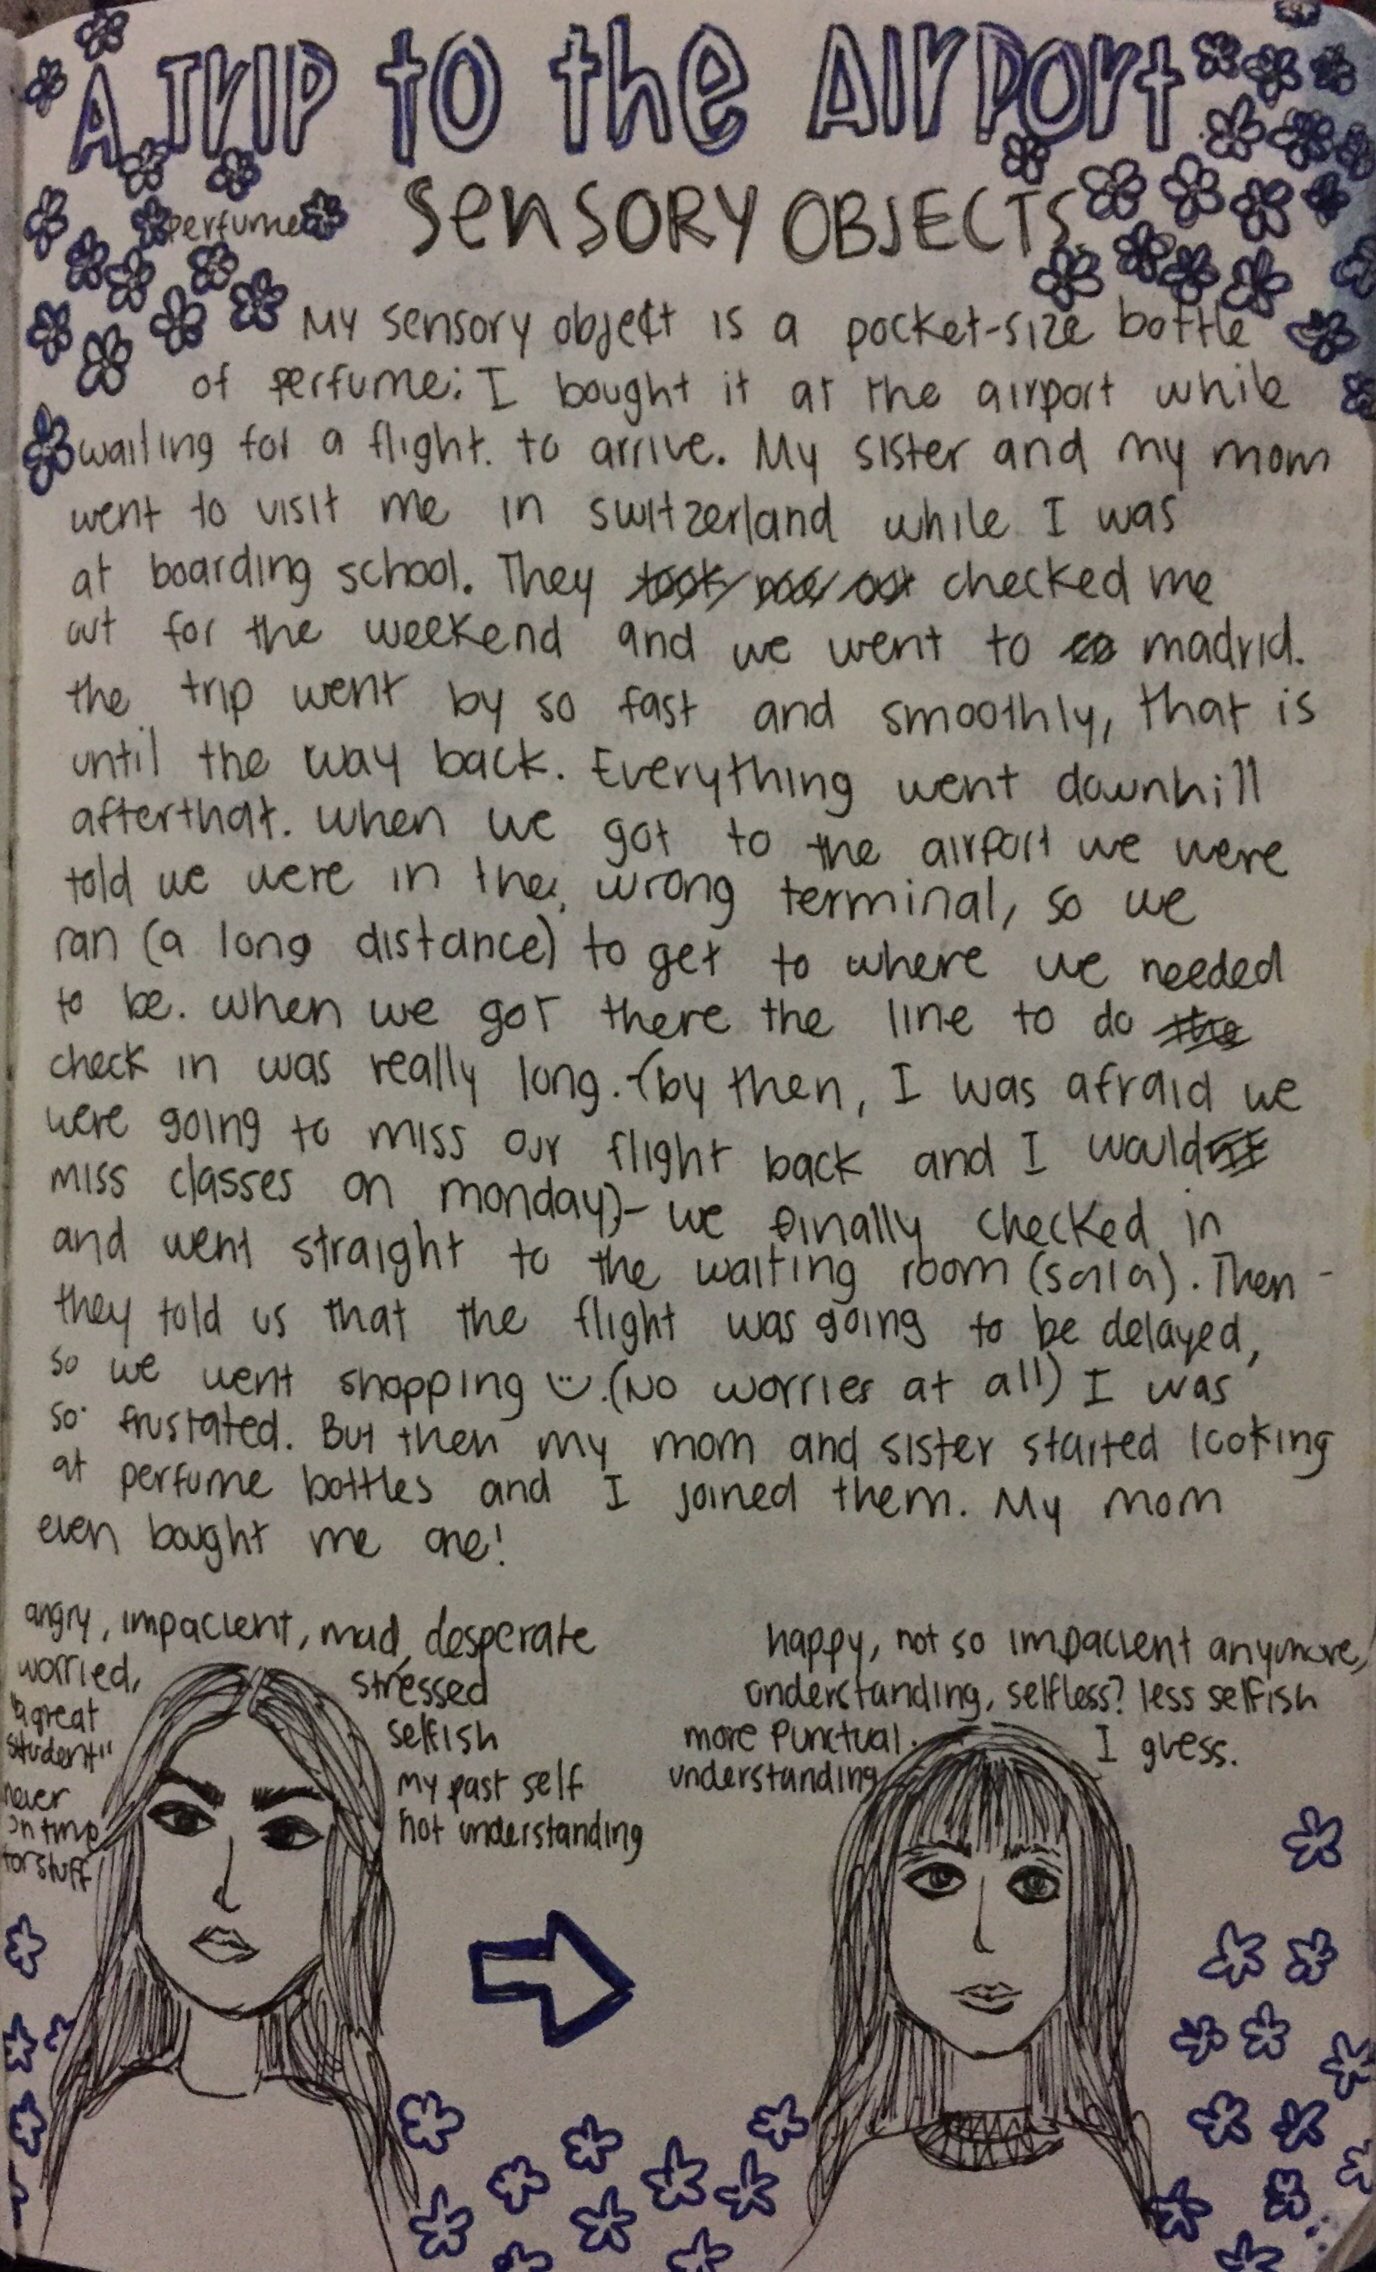 A TRIP to the AIRPORT
perfume
SENSORY OBJECTS
My sensory object is a pocket-size bottle
of perfume; I bought it at the airport while
waiting for a flight to arrive. My sister and my mom
went to visit me in switzerland while I was
at boarding school. They took me out checked me
out for the weekend and we went to madrid.
the trip went by so fast and smoothly, that is
until the way back. Everything went downhill
afterthat. when we got to the airport we were
told we were in the wrong terminal, so we
ran (a long distance) to get to where we needed
to be. when we got there the line to do the
check in was really long. - (by then, I was afraid we
were going to miss our flight back and I would
miss classes on monday) - we finally checked in
and went straight to the waiting room (sala). Then -
they told us that the flight was going to be delayed,
so we went shopping :). (No worries at all) I was
so frustated. But then my mom and sister started looking
at perfume bottles and I joined them. My mom
even bought me one!
angry, impacient, mad, desperate
worried,
stressed
"a great
selfish
student"
my past self
never
not understanding
on time
for stuff
happy, not so impacient anymore,
understanding, selfless? less selfish
more punctual.
I guess.
understanding